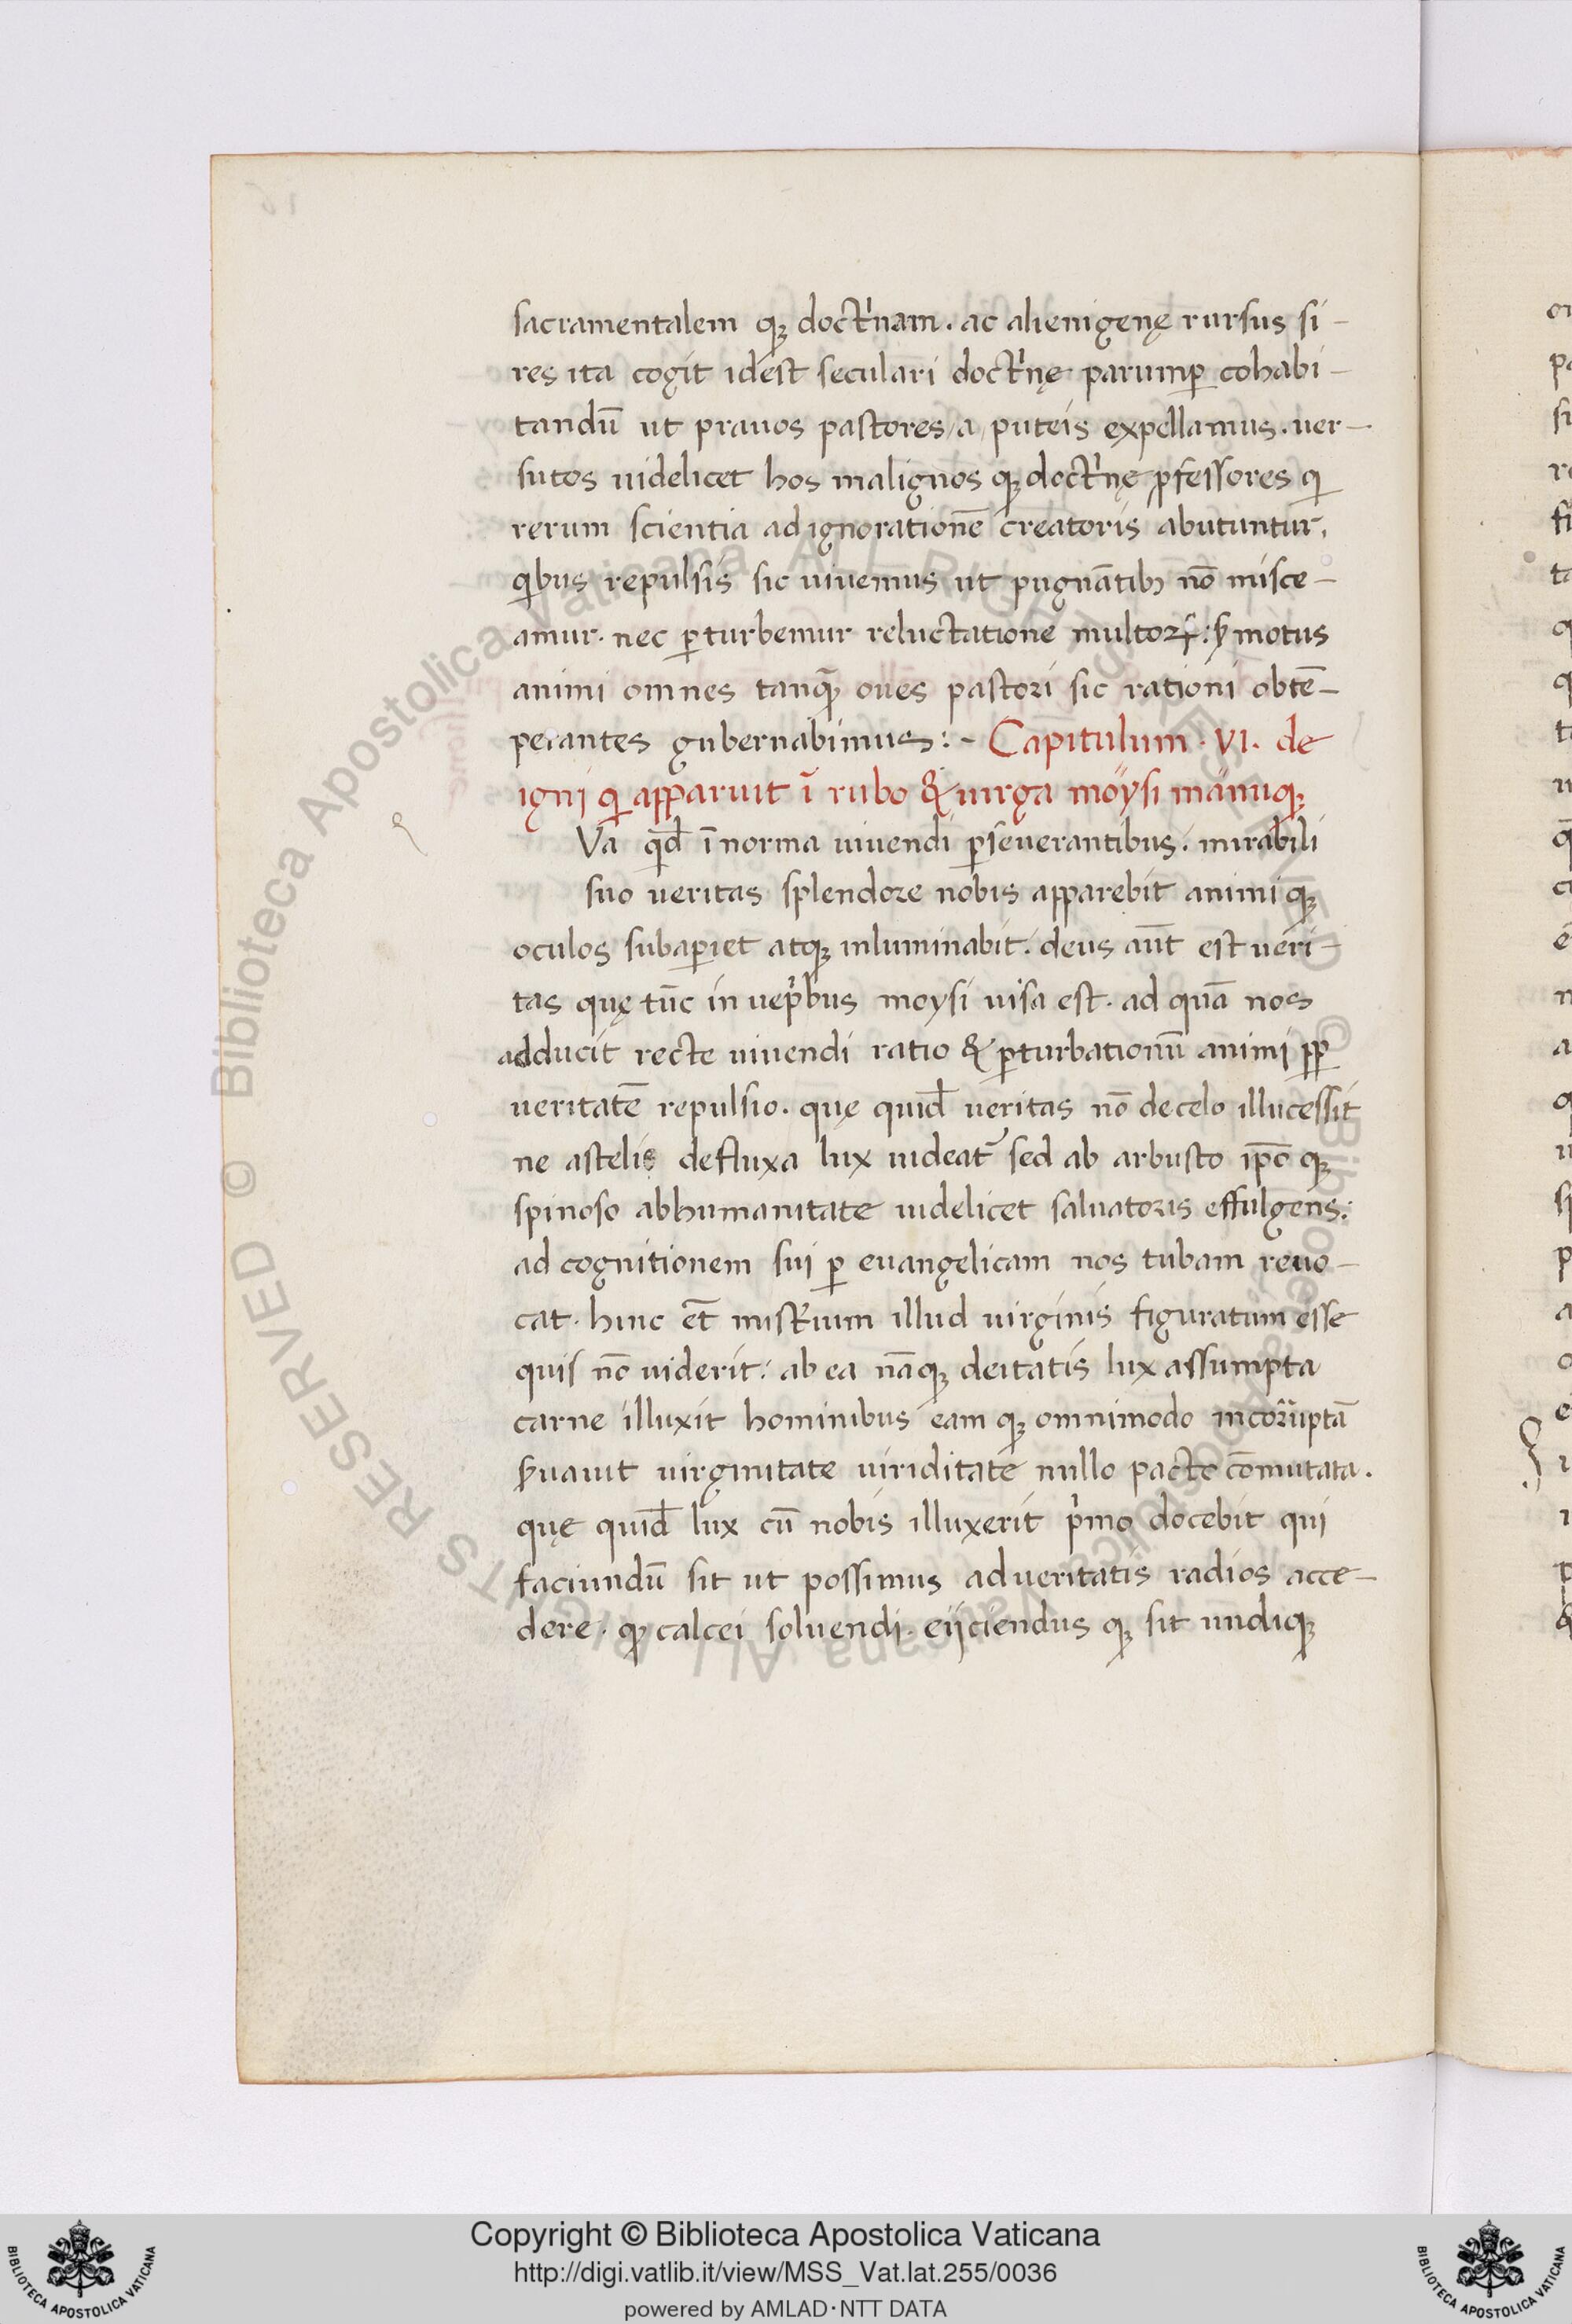 sacramentalem qꝫ doctͥnam. ac alienigenę rursus si-
res ita cogit idest seculari doctͥnę parumꝑ cohabi-
tandū ut prauos pastores a puteis expellamus. uer-
sutos uidelicet hos malignos qꝫ doctͥnę ꝓfessores qͥ
rerum scientia ad ignorationē creatoris abutuntur.
qͥbus repulsis sic uiuemus ut pugnātibꝫ nō misce-
amur. nec ꝑturbemur reluctatione multoꝝ: sꝫ motus
animi omnes tanꝙ̄ oues pastori sic rationi obtē-
perantes gubernabimus:- Capitulum. VI. de
igni qͥ apparuit ī rubo & uirga moysi manuqꝫ
Va qͥd̄ ī norma uiuendi ꝑseuerantibus. mirabili
suo ueritas splendore nobis apparebit animi qꝫ
oculos subaꝑiet atqꝫ inluminabit. deus aūt est ueri-
tas quę tūc in uepͥbus moysi uisa est. ad quā nos
adducit recte uiuendi ratio & ꝑturbationū animi ꝓꝑ
ueritatē repulsio. quę quid̄ ueritas nō de celo illucessit
ne a stelis defluxa lux uideat᷑ sed ab arbusto ip̄o qꝫ
spinoso ab humanitate uidelicet saluatoris effulgens:
ad cognitionem sui ꝑ euangelicam nos tubam reuo-
cat. hinc et̄ mist̄ium illud uirginis figuratum esse
quis nō uiderit: ab ea nāqꝫ deitatis lux assumpta
carne illuxit hominibus eam qꝫ omnimodo incorruptā
s̄uauit uirginitate uiriditate nullo pacto cōmutata.
quę quid̄ lux cū nobis illuxerit pͥmo docebit qui
faciundū sit ut possimus ad ueritatis radios acce-
dere. qꝫ calcei soluendi. eijciendus qꝫ sit undiqꝫ
Copyright © Biblioteca Apostolica Vaticana
http://digi.vatlib.it/view/MSS_Vat.lat.255/0036
powered by AMLAD·NTT DATA